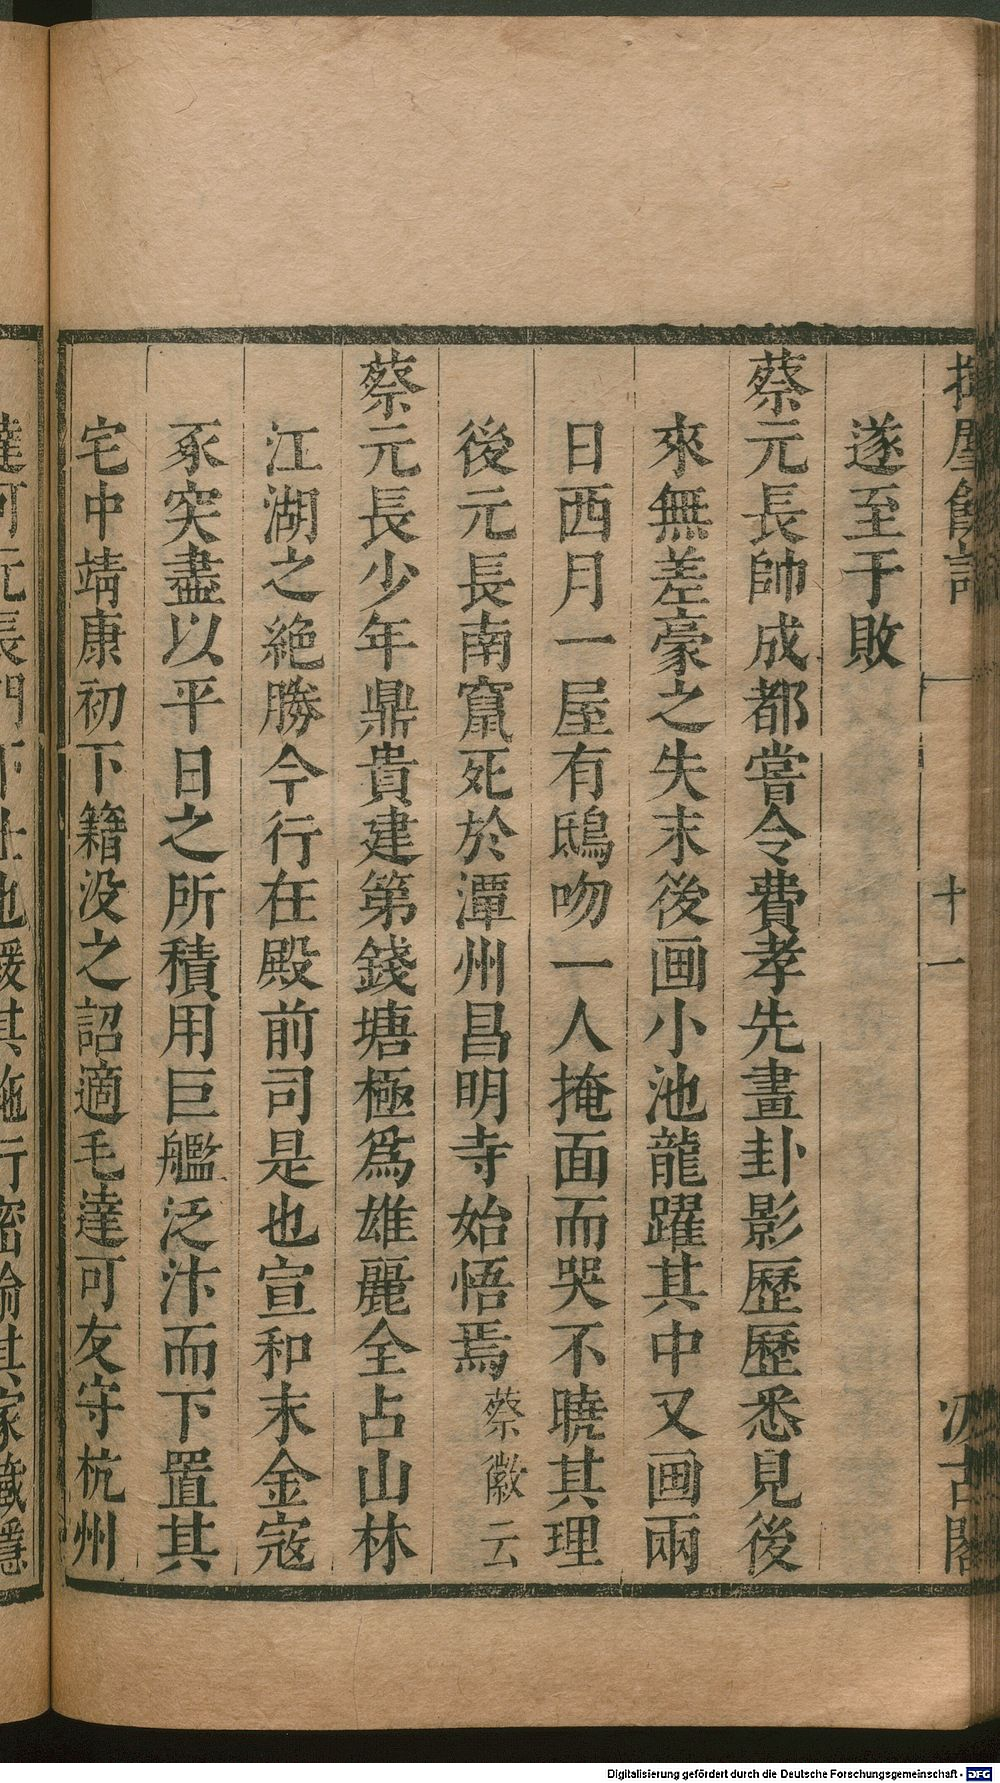 揮麈餘話
十一
汲古閣
遂至于敗
蔡元長帥成都嘗令費孝先畫卦影歷歷悉見後
來無差豪之失末後画小池龍躍其中又画兩
日西月一屋有鴟吻一人掩面而哭不曉其理
後元長南竄死於潭州昌明寺始悟焉蔡徽云
蔡元長少年鼎貴建第錢塘極爲雄麗全占山林
江湖之絶勝今行在殿前司是也宣和末金寇
豕突盡以平日之所積用巨艦泛汴而下置其
宅中靖康初下籍没之詔適毛達可友守杭州
達可元長門下士也緩其施行密諭其家藏隱
Digitalisierung gefördert durch die Deutsche Forschungsgemeinschaft - DFG